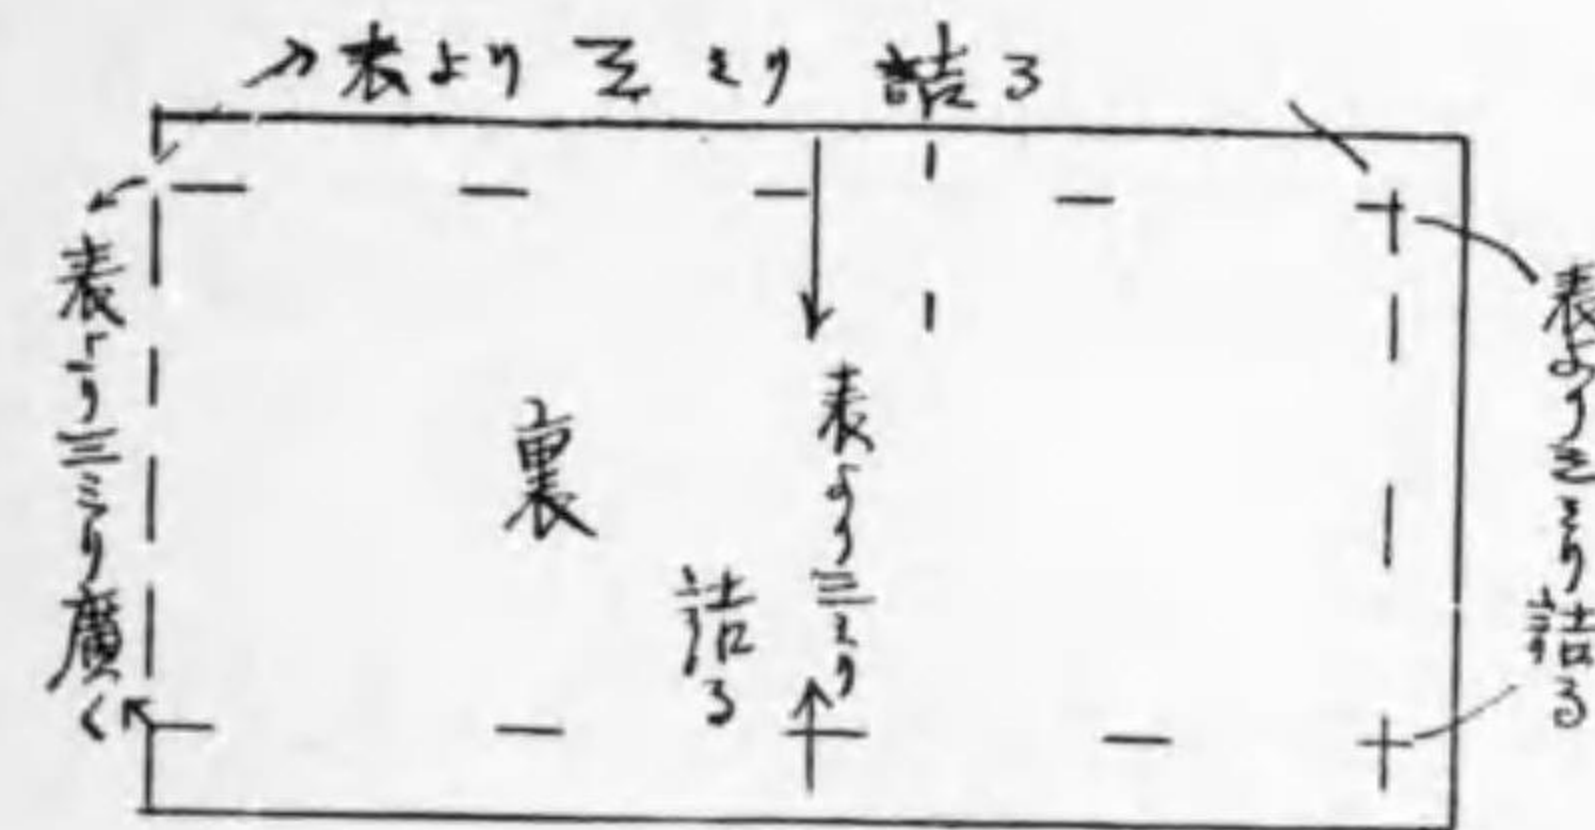 表より三ミリ詰る
表より三ミリ詰る
表より三ミリ
詰る
裏
表より三ミリ廣く